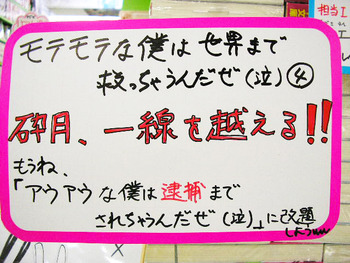 モテモテな僕は世界まで
救っちゃうんだぜ(泣)④
砕月、一線を越える!!
もうね、
「アウアウな僕は逮捕まで
されちゃうんだぜ(泣)」に改題
しようww
担当